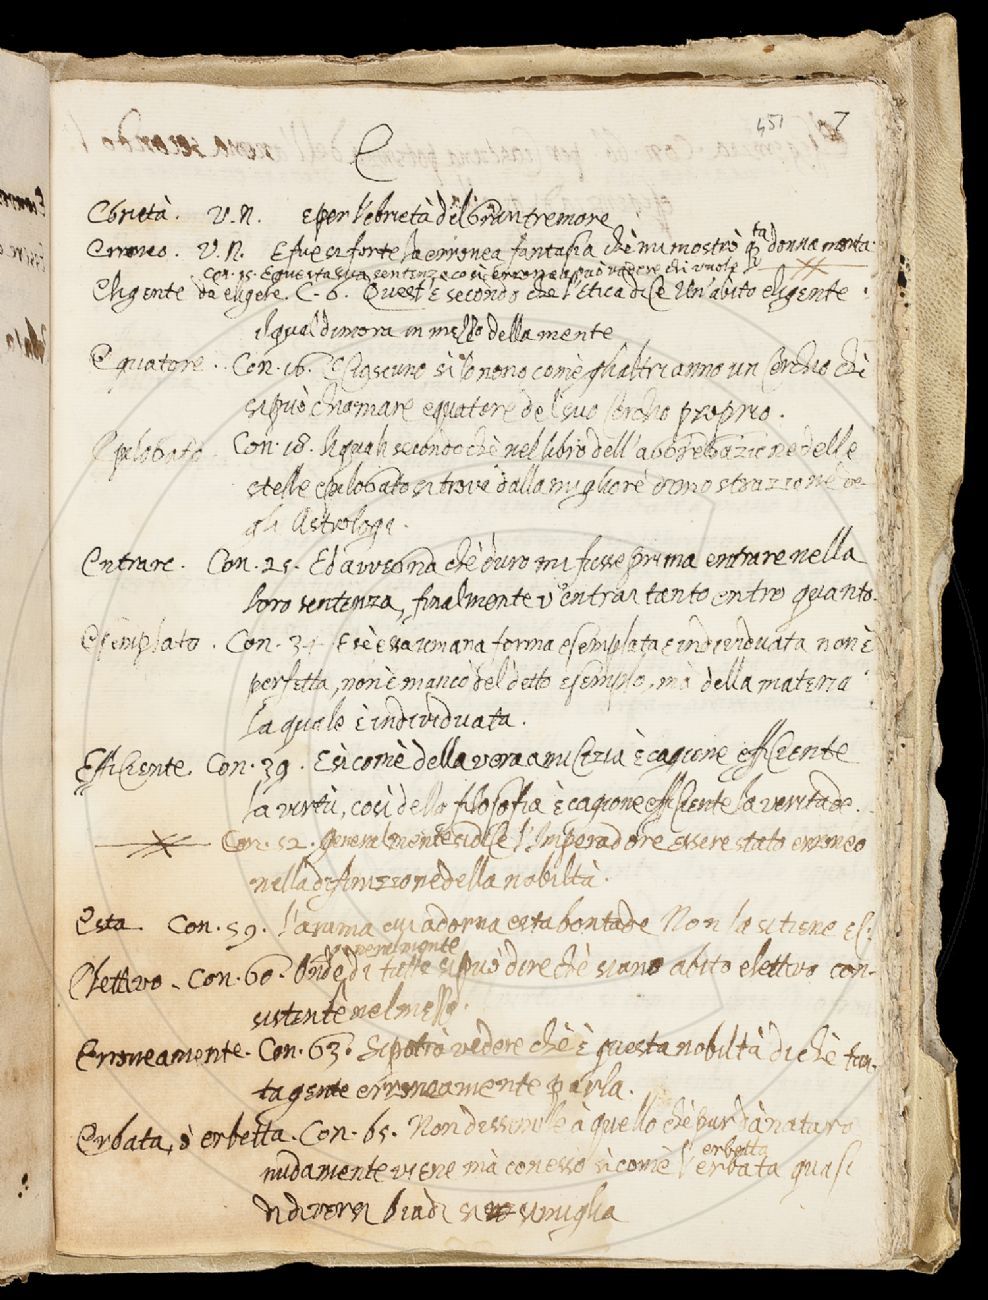 451 7
E
Ebrietà. V.N. E per l'ebrietà del gran tremore
Erroneo. V.N. E fue sì forte la erronea fantasia che mi mostrò q.ta donna morta.
Con. 15. E questa sua sentenza così erronea può vedere chi vuole
Eligente da eligere. C. 6. Quest'è secondo che l'Etica dice Un'abito eligente
il qual dimora in mezzo della mente
Equatore. Con. 16. Ciascuno sì lo nono come gli altri anno un Cerchio che
si può chiamare equatore del suo Cerchio proprio.
Epilobato. Con. 18. li quali secondo che nel libro dell'aggregazione delle
stelle epilobato si trova dalla migliore dimostrazione de
gli Astrologi.
Entrare. Con. 25. Ed avvegna che duro mi fusse prima entrare nella
loro sentenza, finalmente v'entrai tanto entro quanto.
Esemplato. Con. 34. E sè essa umana forma esemplata e individuata non è
perfetta, non è manco del detto esemplo, mà della materia
la quale è individuata.
Efficiente. Con. 39. E sì come della vera amicizia è cagione efficiente
la virtù, così della filosofia è cagione efficiente la veritade.
Con. 52. generalmente si dice l'Imperadore essere stato erroneo
nella difinizione della nobiltà.
Esta. Con. 59. L'anima cui adorna esta bontade Non la si tiene
Elettivo. Con. 60. Onde di tutte generalmente si può dire che siano abito elettivo con-
sistente nel mezzo.
Erroneamente. Con. 63. Si potrò vedere che è questa nobiltà di che tan-
ta gente erroneamente parla.
Erbata, ò erbetta. Con. 65. Non dissimile à quello che pur dà natura
nudamente viene mà con esso sì come l'erbata erbetta quasi
di diversi biadi si simiglia